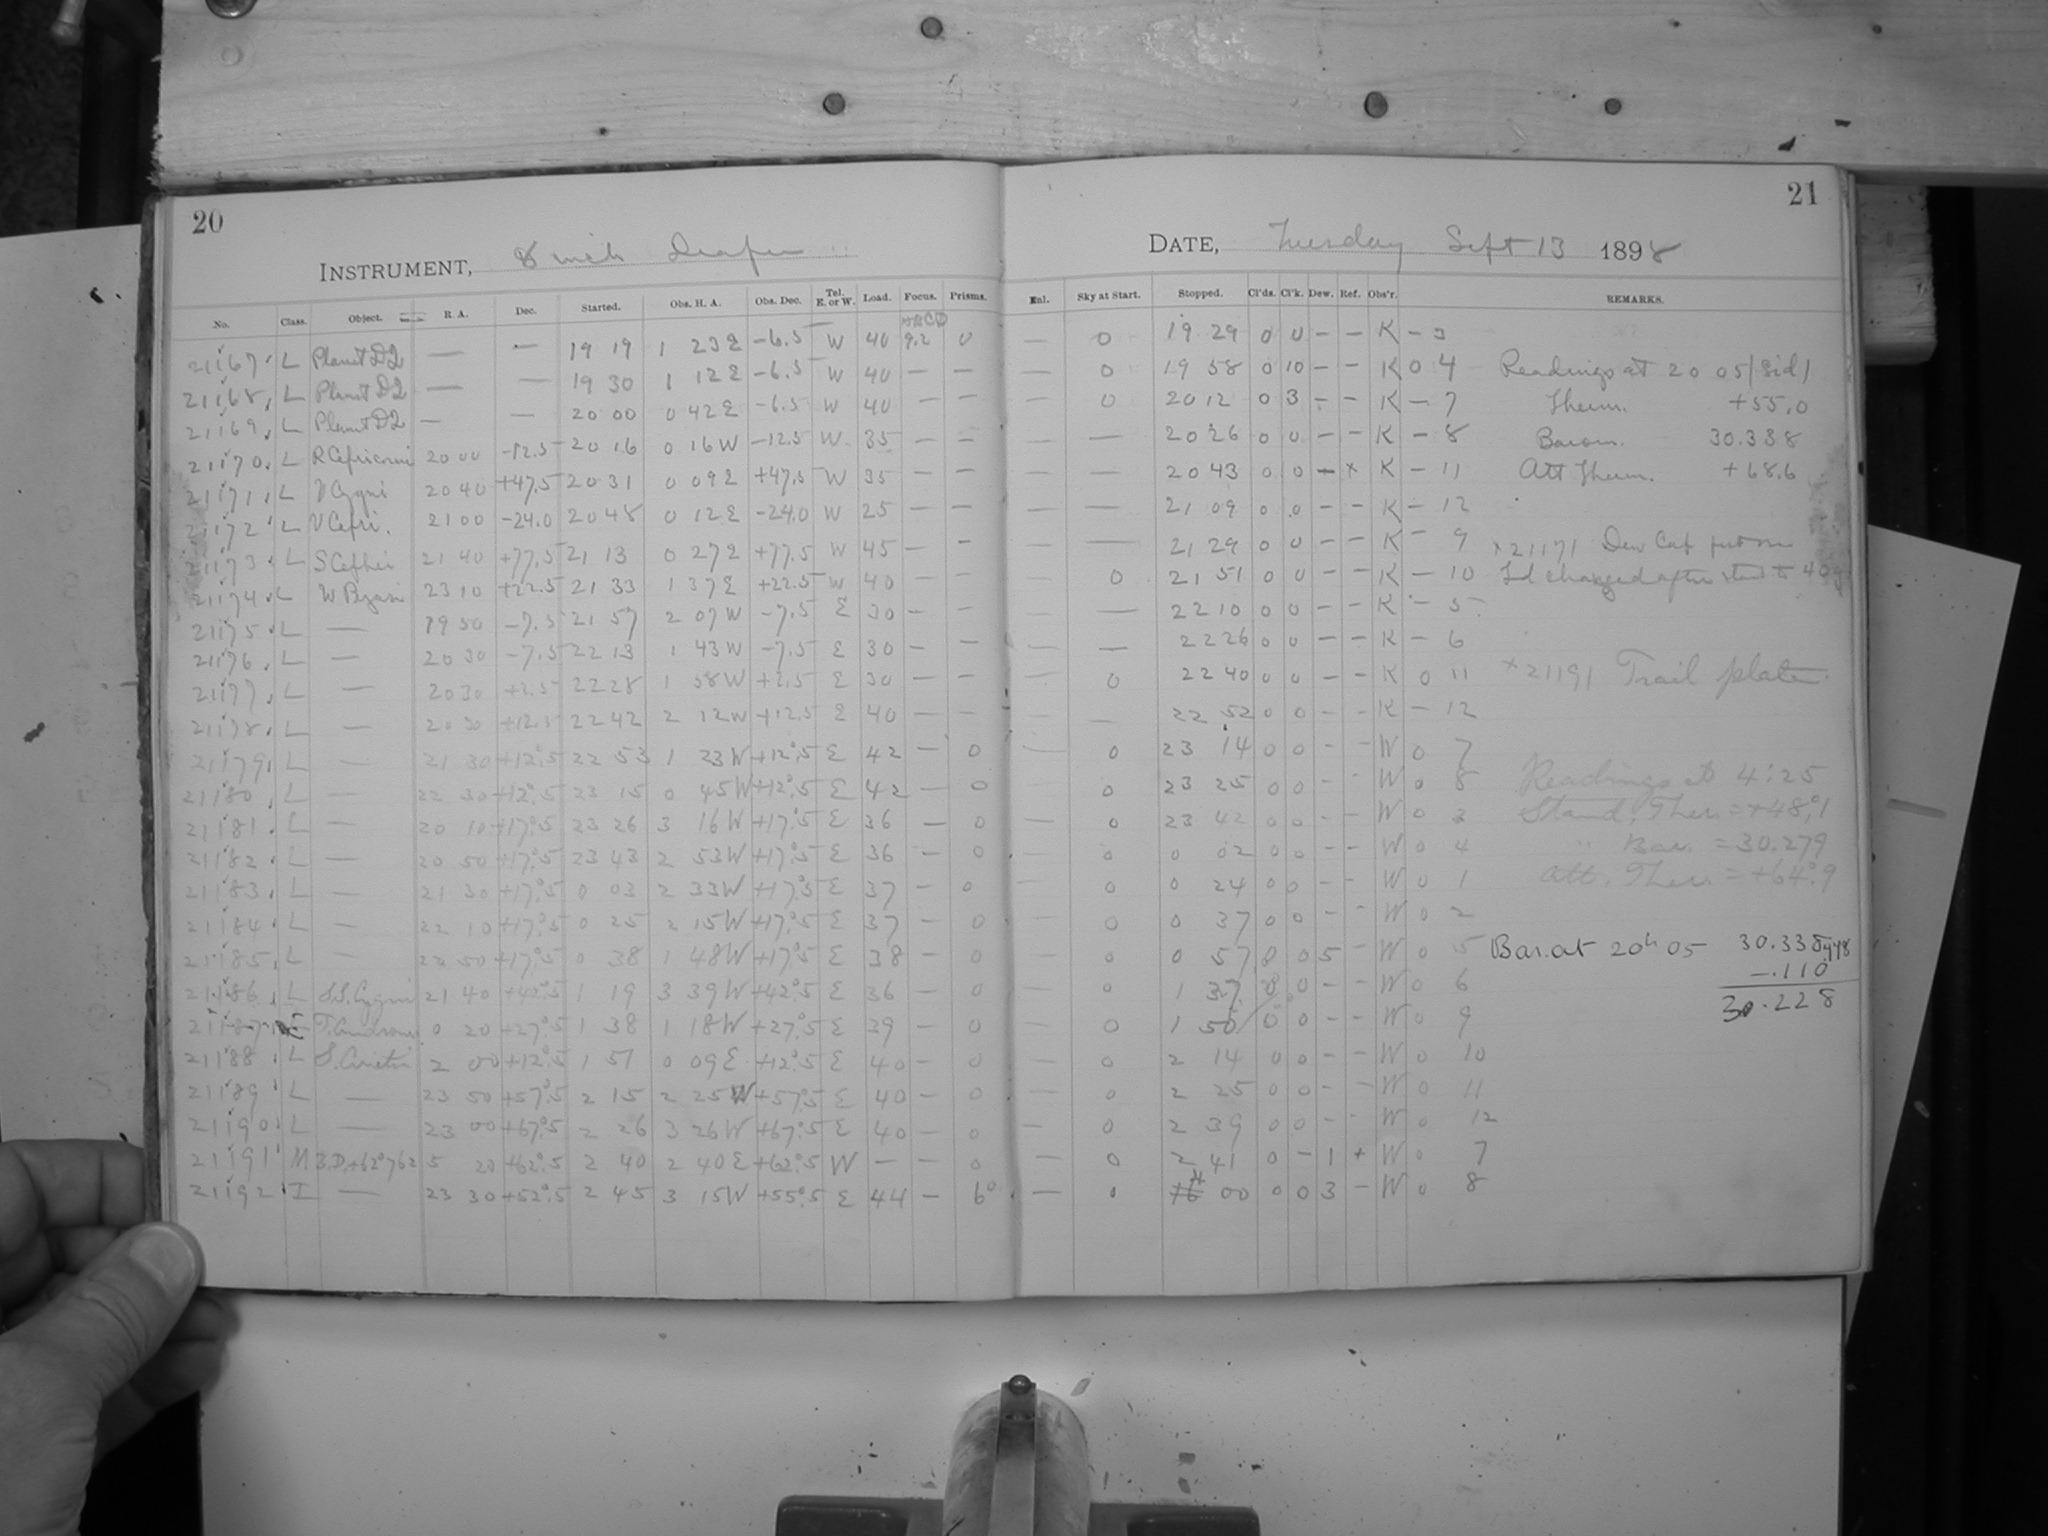 20
21
INSTRUMENT, 8 inch Draper
DATE, Tuesday Sept 13 1898
No. Class. Object. R. A. Dec. Started. Obs. H. A. Obs. Dec. Tel. E. or W. Load. Focus. Prisms. Enl. Sky at Start. Stopped. Cl'ds. Cl'k. Dew. Ref. Obs'r. REMARKS.
21167 L Planet DQ — — 19 19 1 23 E -6.5 W 40 9.2 0 — 0 19 29 0 0 - - K - 3
21168 L Planet DQ — — 19 30 1 12 E -6.5 W 40 — — — 0 19 58 0 10 - - K 0 4 Readings at 20 05 (Sid)
21169 L Planet DQ — — 20 00 0 42 E -6.5 W 40 — — — 0 20 12 0 3 - - K - 7 Therm. +55.0
21170 L R Capricorni 20 00 -12.5 20 16 0 16 W -12.5 W 35 — — — — 20 26 0 0 - - K - 8 Barom. 30.338
21171 L V Cygni 20 40 +47.5 20 31 0 09 E +47.5 W 35 — — — — 20 43 0 0 - x K - 11 Att Therm. +68.6
21172 L V Capri. 21 00 -24.0 20 48 0 12 E -24.0 W 25 — — — — 21 09 0 0 - - K - 12
21173 L S Cephei 21 40 +77.5 21 13 0 27 E +77.5 W 45 — — — — 21 29 0 0 - - K - 9 x 21171 Dew Cap put on
21174 L W Pegasi 23 10 +22.5 21 33 1 37 E +22.5 W 40 — — — 0 21 51 0 0 - - K - 10 Ld changed after start to 40
21175 L — 19 50 -7.5 21 57 2 07 W -7.5 E 30 — — — — 22 10 0 0 - - K - 5
21176 L — 20 30 -7.5 22 13 1 43 W -7.5 E 30 — — — — 22 26 0 0 - - K - 6
21177 L — 20 30 +2.5 22 28 1 58 W +2.5 E 30 — — — 0 22 40 0 0 - - K 0 11 x 21191 Trail plate.
21178 L — 20 30 +12.5 22 42 2 12 W +12.5 E 40 — — — — 22 52 0 0 - - K - 12
21179 L — 21 30 +12°.5 22 53 1 23 W +12°.5 E 42 — 0 — 0 23 14 0 0 - - W 0 7
21180 L — 22 30 +12°.5 23 15 0 45 W +12°.5 E 42 — 0 — 0 23 25 0 0 - - W 0 8 Readings at 4:25
21181 L — 20 10 +17°.5 23 26 3 16 W +17°.5 E 36 — 0 — 0 23 42 0 0 - - W 0 3 Stand. Ther. = +48°.1
21182 L — 20 50 +17°.5 23 43 2 53 W +17°.5 E 36 — 0 — 0 0 02 0 0 - - W 0 4 " Bar. = 30.279
21183 L — 21 30 +17°.5 0 03 2 33 W +17°.5 E 37 — 0 — 0 0 24 0 0 - - W 0 1 Att. Ther. = +64°.9
21184 L — 22 10 +17°.5 0 25 2 15 W +17°.5 E 37 — 0 — 0 0 37 0 0 - - W 0 2
21185 L — 22 50 +17°.5 0 38 1 48 W +17°.5 E 38 — 0 — 0 0 57 0 0 5 - W 0 5 Bar. at 20h 05 30.338
21186 L S.S. Cygni 21 40 +42°.5 1 19 3 39 W +42°.5 E 36 — 0 — 0 1 37 0 0 - - W 0 6 -.110
21187 L T. Androm. 0 20 +27°.5 1 38 1 18 W +27°.5 E 39 — 0 — 0 1 50 0 0 - - W 0 9 30.228
21188 L S. Arietis 2 00 +12°.5 1 51 0 09 E +12°.5 E 40 — 0 — 0 2 14 0 0 - - W 0 10
21189 L — 23 50 +57°.5 2 15 2 25 W +57°.5 E 40 — 0 — 0 2 25 0 0 - - W 0 11
21190 L — 23 00 +67°.5 2 26 3 26 W +67°.5 E 40 — 0 — 0 2 39 0 0 - - W 0 12
21191 M B.D.+62°762 5 20 +62°.5 2 40 2 40 E +62°.5 W — — 0 — 0 2 41 0 - 1 + W 0 7
21192 I — 23 30 +52°.5 2 45 3 15 W +55°.5 E 44 — 6° — 0 00 0 0 3 - W 0 8